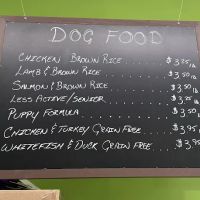 DOG FOOD
CHICKEN BROWN RICE . . . . . $3.25 lb
LAMB & BROWN RICE . . . . . . $3.50 lb
SALMON & BROWN RICE . . . . . $3.50 lb
LESS ACTIVE/SENIOR . . . . . . $3.25 lb
PUPPY FORMULA . . . . . . . . $3.50 lb
CHICKEN & TURKEY GRAIN FREE . . $3.95
WHITEFISH & DUCK GRAIN FREE . . $3.95